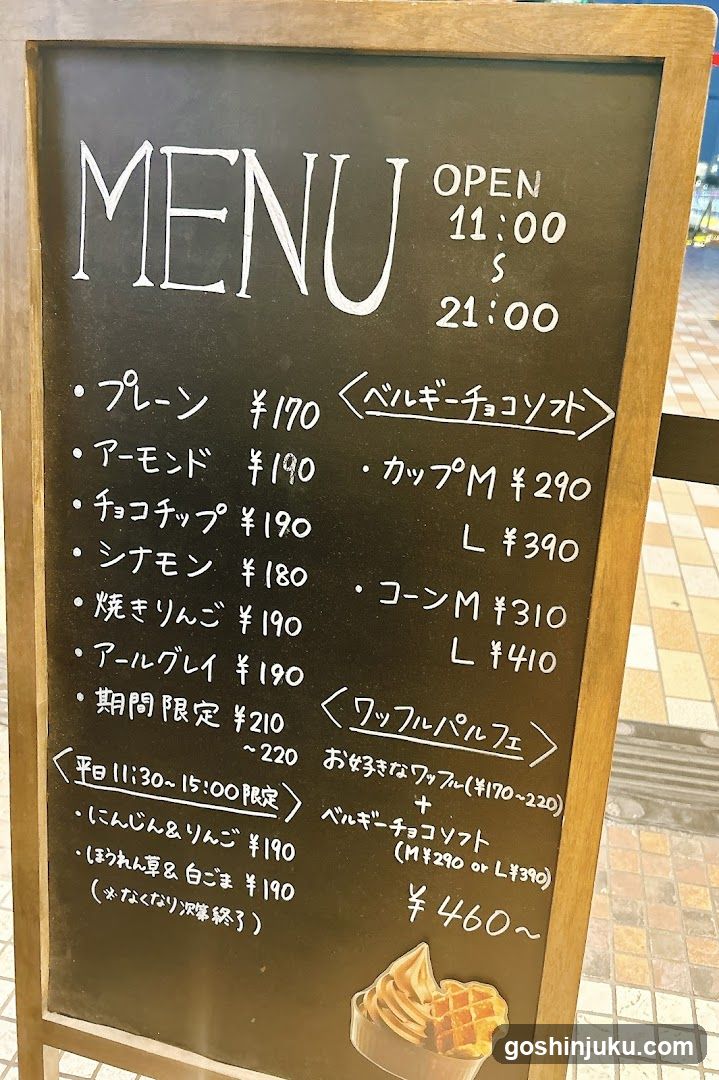 MENU
OPEN
11:00
〜
21:00
・プレーン ¥170
・アーモンド ¥190
・チョコチップ ¥190
・シナモン ¥180
・焼きりんご ¥190
・アールグレイ ¥190
・期間限定 ¥210
~220
〈平日11:30~15:00限定〉
・にんじん&りんご ¥190
・ほうれん草&白ごま ¥190
(※なくなり次第終了)
〈ベルギーチョコソフト〉
・カップM ¥290
L ¥390
・コーンM ¥310
L ¥410
〈ワッフルパルフェ〉
お好きなワッフル(¥170~220)
+
ベルギーチョコソフト
(M¥290 or L¥390)
¥460~
goshinjuku.com